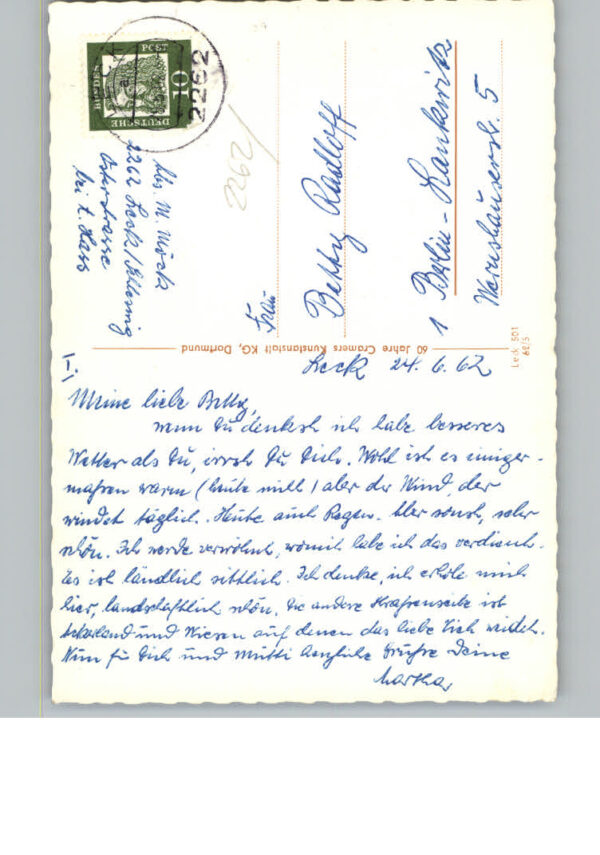 DEUTSCHE
BUNDES
POST
10
LECK
2262
Abs. M. Möck
2262 Leck/Schleswig
Osterstrasse
bei L. Hass
2262/
Frau
Betty Radloff
1 Berlin-Lankwitz
Wernshäuserstr. 5
60 Jahre Cramers Kunstanstalt KG, Dortmund
Leck 501
62/5
Leck 24.6.62
Meine liebe Betty,
wenn Du denkst ich habe besseres
Wetter als Du, irrst Du Dich. Wohl ist es einiger-
maßen warm (heute nicht) aber der Wind, der
windet täglich. Heute auch Regen. Aber sonst, sehr
schön. Ich werde verwöhnt, womit habe ich das verdient.
Es ist ländlich sittlich. Ich denke, ich erhole mich
hier, landschaftlich schön. Die andere Straßenseite ist
Ackerland und Wiesen auf denen das liebe Vieh weidet.
Nun für Dich und Mutti herzliche Grüße Deine
Martha